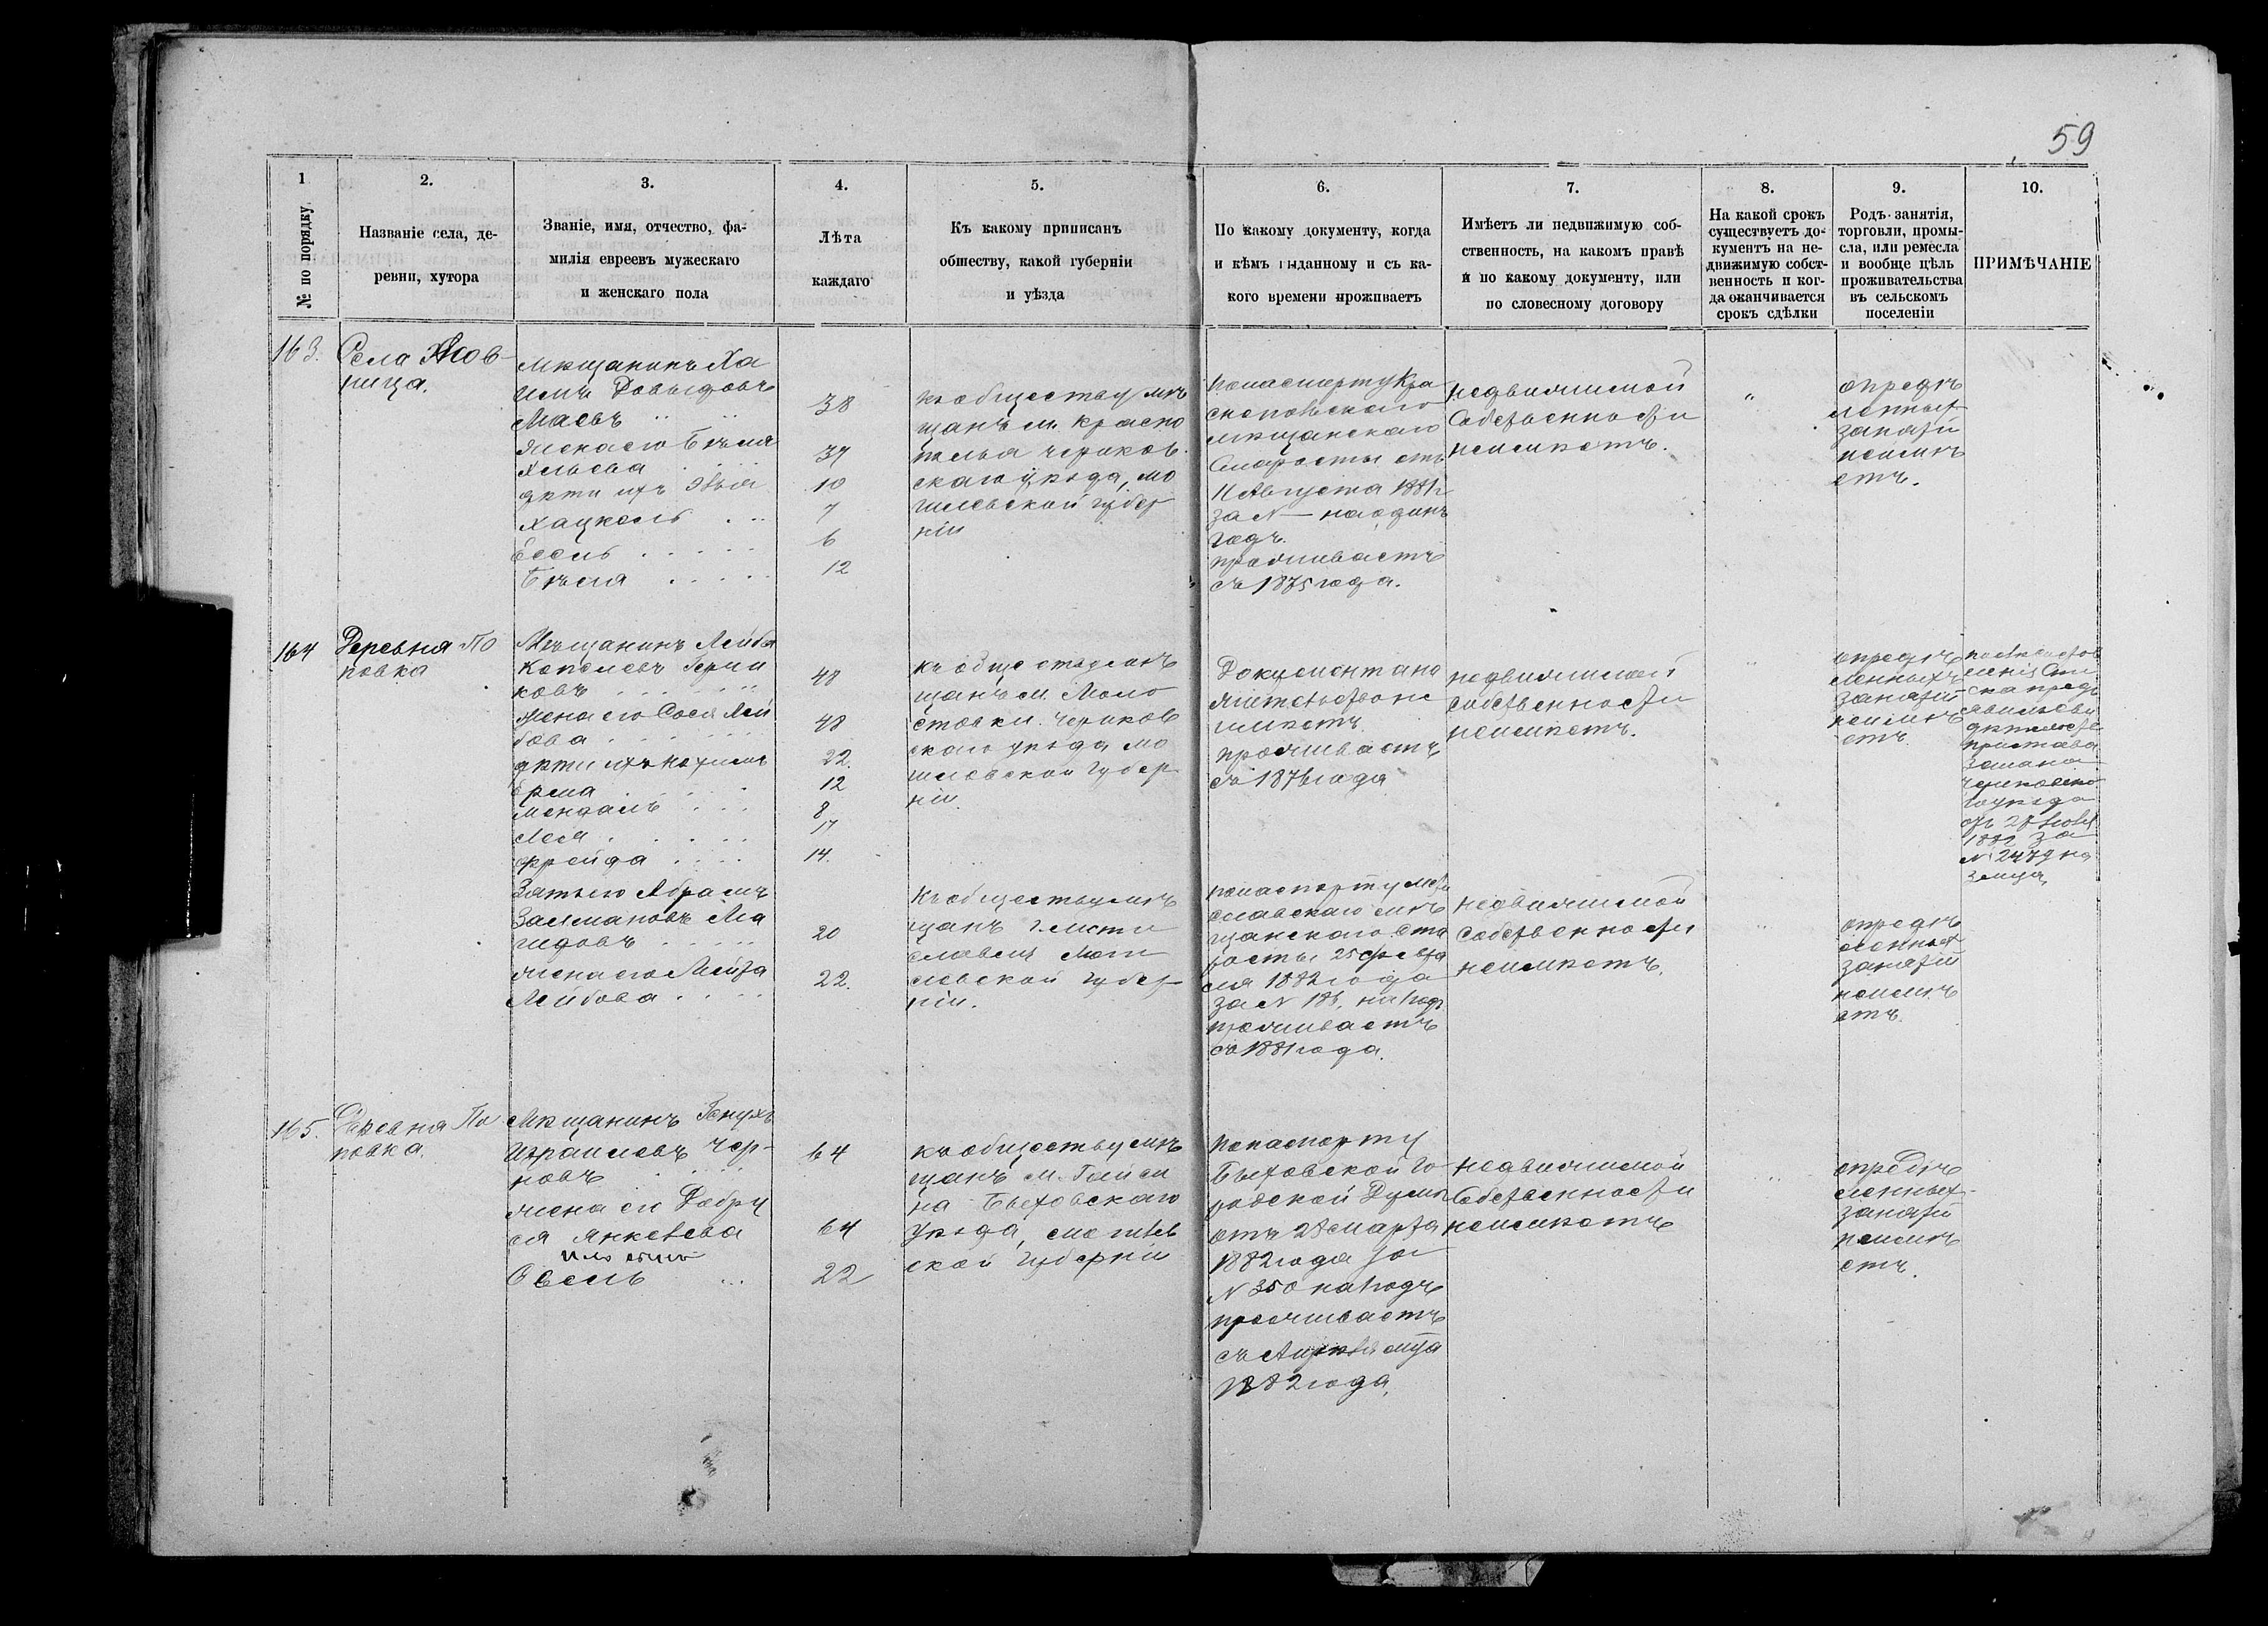 59
1
№ по порядку
2.
Названіе села, де-
ревни, хутора
3.
Званіе, имя, отчество, фа-
милія евреевъ мужескаго
и женскаго пола
4.
Лѣта
каждаго
5.
Къ какому приписанъ
обществу, какой губерніи
и уѣзда
6.
По какому документу, когда
и кѣмъ выданному и съ ка-
кого времени проживаетъ
7.
Имѣетъ ли недвижимую соб-
ственность, на какомъ правѣ
и по какому документу, или
по словесному договору
8.
На какой срокъ
существуетъ до-
кументъ на не-
движимую собст-
венность и ког-
да оканчивается
срокъ сдѣлки
9.
Родъ занятія,
торговли, промы-
сла, или ремесла
и вообще цѣль
проживательства
въ сельскомъ
поселеніи
10.
ПРИМѢЧАНІЕ
163.
Села
ница.
Мѣщанинъ Ха
имъ Довыдовъ
Маевъ
жена его Бѣля
дѣти ихъ
Хацкель
Есель
38
10
7
6
12
къ обществу мѣ
щанъ м. Красно
полья Чериков
скаго уѣзда, мо
гилевской губер
ніи
по паспорту Кра
снопольскаго
мѣщанскаго
Старосты отъ
11 Августа 1881 г.
за № — на одинъ
годъ.
проживаетъ
съ 1875 года.
недвижимой
Собственности
неимѣетъ.
"
опредѣ
ленныхъ
занятій
неимѣ
етъ.
164
Деревня По
повка
Мѣщанинъ Лейба
Копелевъ
ковъ
жена его Сося Лей
бова
дѣти ихъ
Мендель
Лея
Фрейда
48
48
22.
12
8
17
14.
къ обществу мѣ
щанъ м.
Чериков
скаго уѣзда мо
гилевской Губер
ніи.
Документа на
жительство не
имѣетъ.
проживаетъ
съ 1876 года
недвижимой
собственности
неимѣетъ.
"
опредѣ
ленныхъ
занятій
неимѣ
етъ.
пристава
2 стана
Чериковско
го уѣзда
отъ 28
1882 за
№ 2479 на
Зять его Абрамъ
Залмановъ Ма
гидовъ
жена его
Лейбова
20
22.
Къ обществу мѣ
щанъ г. Мсти
славля Моги
левской Губер
ніи.
по паспорту Мсти
славскаго мѣ
щанскаго Ста
росты 25 Февра
ля 1882 года
за № 188. на 1 годъ
проживаетъ
съ 1881 года.
недвижимой
Собственности
неимѣетъ.
"
опредѣ
ленныхъ
занятій
неимѣ
етъ.
165.
Деревня По
повка.
Мѣщанинъ Генухъ
Израилевъ Чер-
новъ
жена его Добру
ся Янкелева
Овсей
64
64
22
къ обществу мѣ
щанъ м.
на Быховскаго
Уѣзда, могилев
ской Губерніи
По паспорту
Быховской Го
родской Думы
отъ 28 Марта
1882 года за
№ 350 на 1 годъ
проживаетъ
съ Апрѣля м-ца
1882 года.
недвижимой
Собственности
неимѣетъ
"
опредѣ
ленныхъ
занятій
неимѣ
етъ.